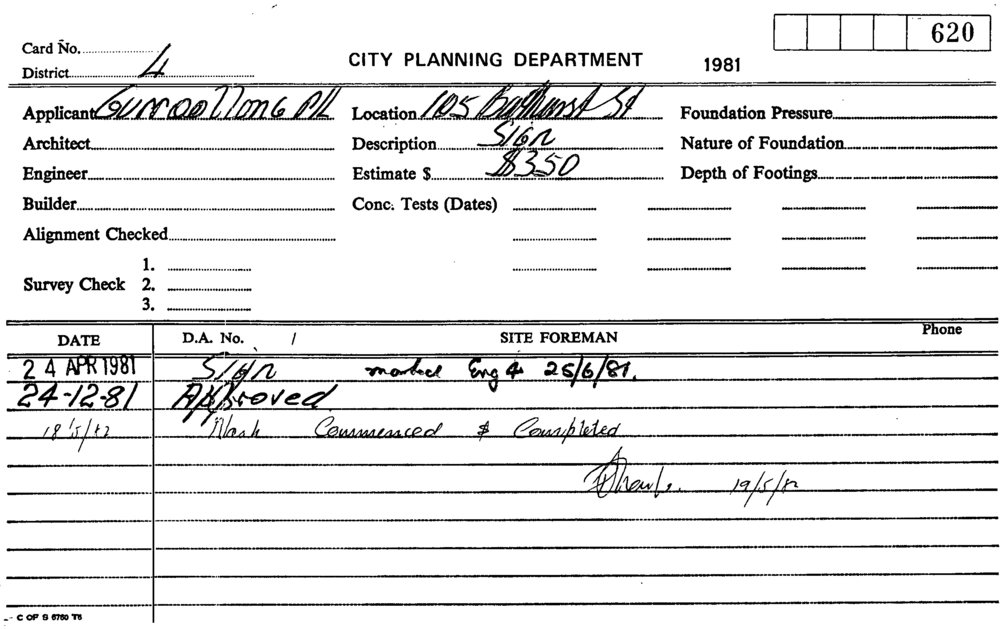 620
Card No.
District 4
CITY PLANNING DEPARTMENT 1981
Applicant Location 105 Bathurst St Foundation Pressure
Architect Description Sign Nature of Foundation
Engineer Estimate $ $350 Depth of Footings
Builder Conc. Tests (Dates)
Alignment Checked
1.
Survey Check 2.
3.
DATE D.A. No. / SITE FOREMAN Phone
24 APR 1981 Sign marked Eng 4 25/6/81.
24-12-81 Approved
18/5/82 Work Commenced & Completed
19/5/82
C OF S 6760 T6